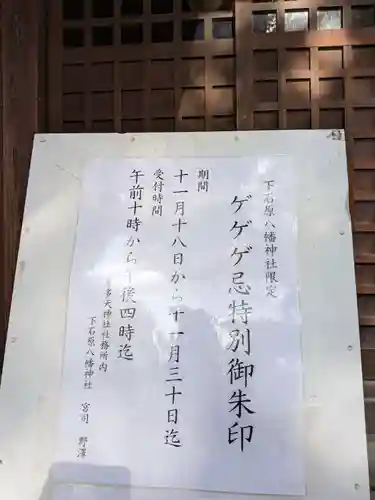 下石原八幡神社限定
ゲゲゲ忌特別御朱印
期間
十一月十八日から十一月三十日迄
受付時間
午前十時から午後四時迄
布多天神社社務所内
下石原八幡神社 宮司 野澤